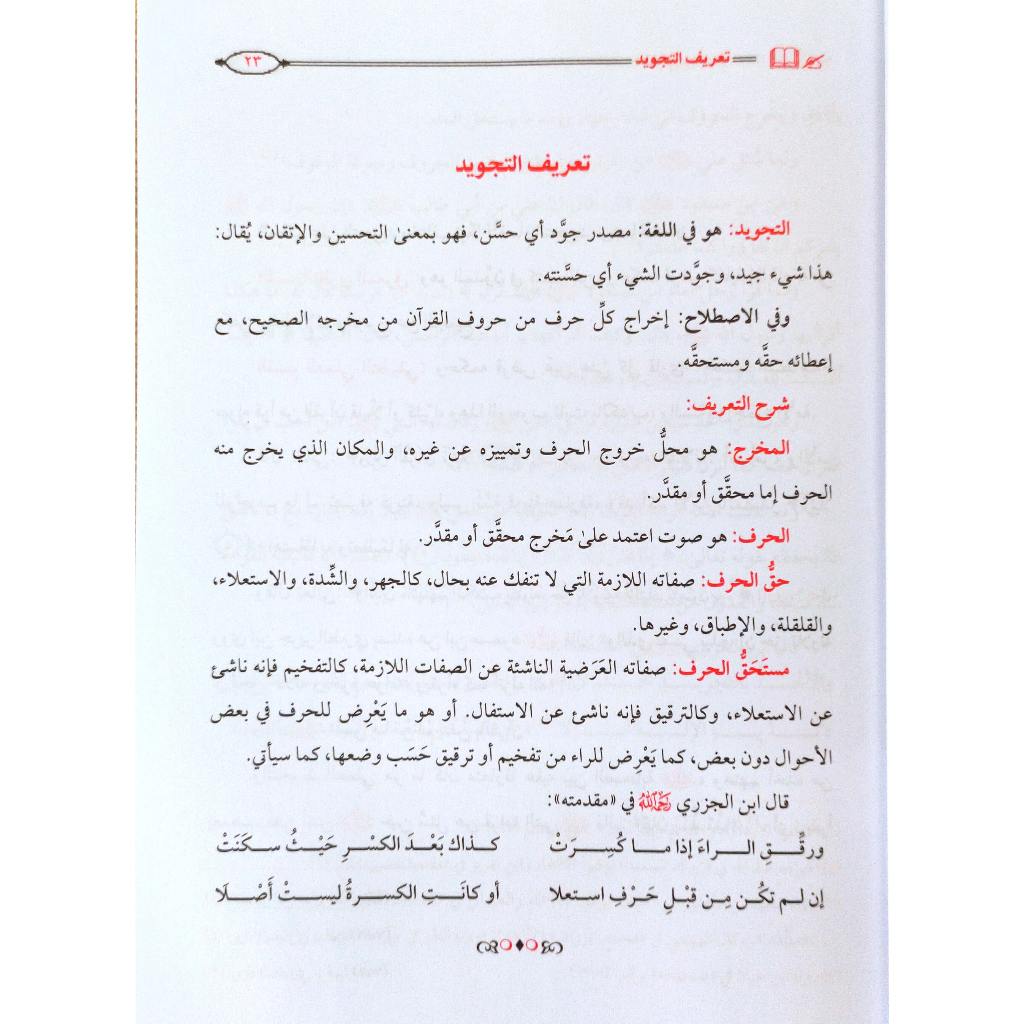 تعريف التجويد
٢٣
تعريف التجويد
التجويد: هو في اللغة: مصدر جوَّد أي حسَّن، فهو بمعنىٰ التحسين والإتقان، يُقال:
هذا شيء جيد، وجوَّدت الشيء أي حسَّنته.
وفي الاصطلاح: إخراج كلِّ حرف من حروف القرآن من مخرجه الصحيح، مع
إعطائه حقَّه ومستحقَّه.
شرح التعريف:
المخرج: هو محلُّ خروج الحرف وتمييزه عن غيره، والمكان الذي يخرج منه
الحرف إما محقَّق أو مقدَّر.
الحرف: هو صوت اعتمد علىٰ مَخرج محقَّق أو مقدَّر.
حقُّ الحرف: صفاته اللازمة التي لا تنفك عنه بحال، كالجهر، والشِّدة، والاستعلاء،
والقلقلة، والإطباق، وغيرها.
مستَحَقُّ الحرف: صفاته العَرَضية الناشئة عن الصفات اللازمة، كالتفخيم فإنه ناشئ
عن الاستعلاء، وكالترقيق فإنه ناشئ عن الاستفال. أو هو ما يَعْرِض للحرف في بعض
الأحوال دون بعض، كما يَعْرِض للراء من تفخيم أو ترقيق حَسَب وضعها، كما سيأتي.
قال ابن الجزري رَحِمَهُ ٱللَّهُ في «مقدمته»:
ورقِّــقِ الــراءَ إذا مــا كُسِــرَتْ كــذاك بَعْــدَ الكسْــرِ حَيْــثُ سـكَنَتْ
إن لـم تكُـن مِـن قبْـلِ حَـرْفِ استعلا أو كانَـتِ الكسـرةُ ليسـتْ أَصْــلَا